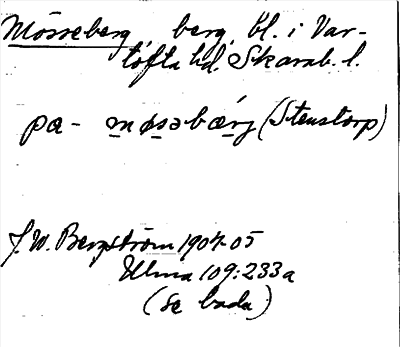 Mösseberg berg, bl. i Var-
tofta hd. Skarab. l.
pa - møsəbærj (Stenstorp)
J. W. Bergström 1904-05
Ulma 109:233a
(se bada)